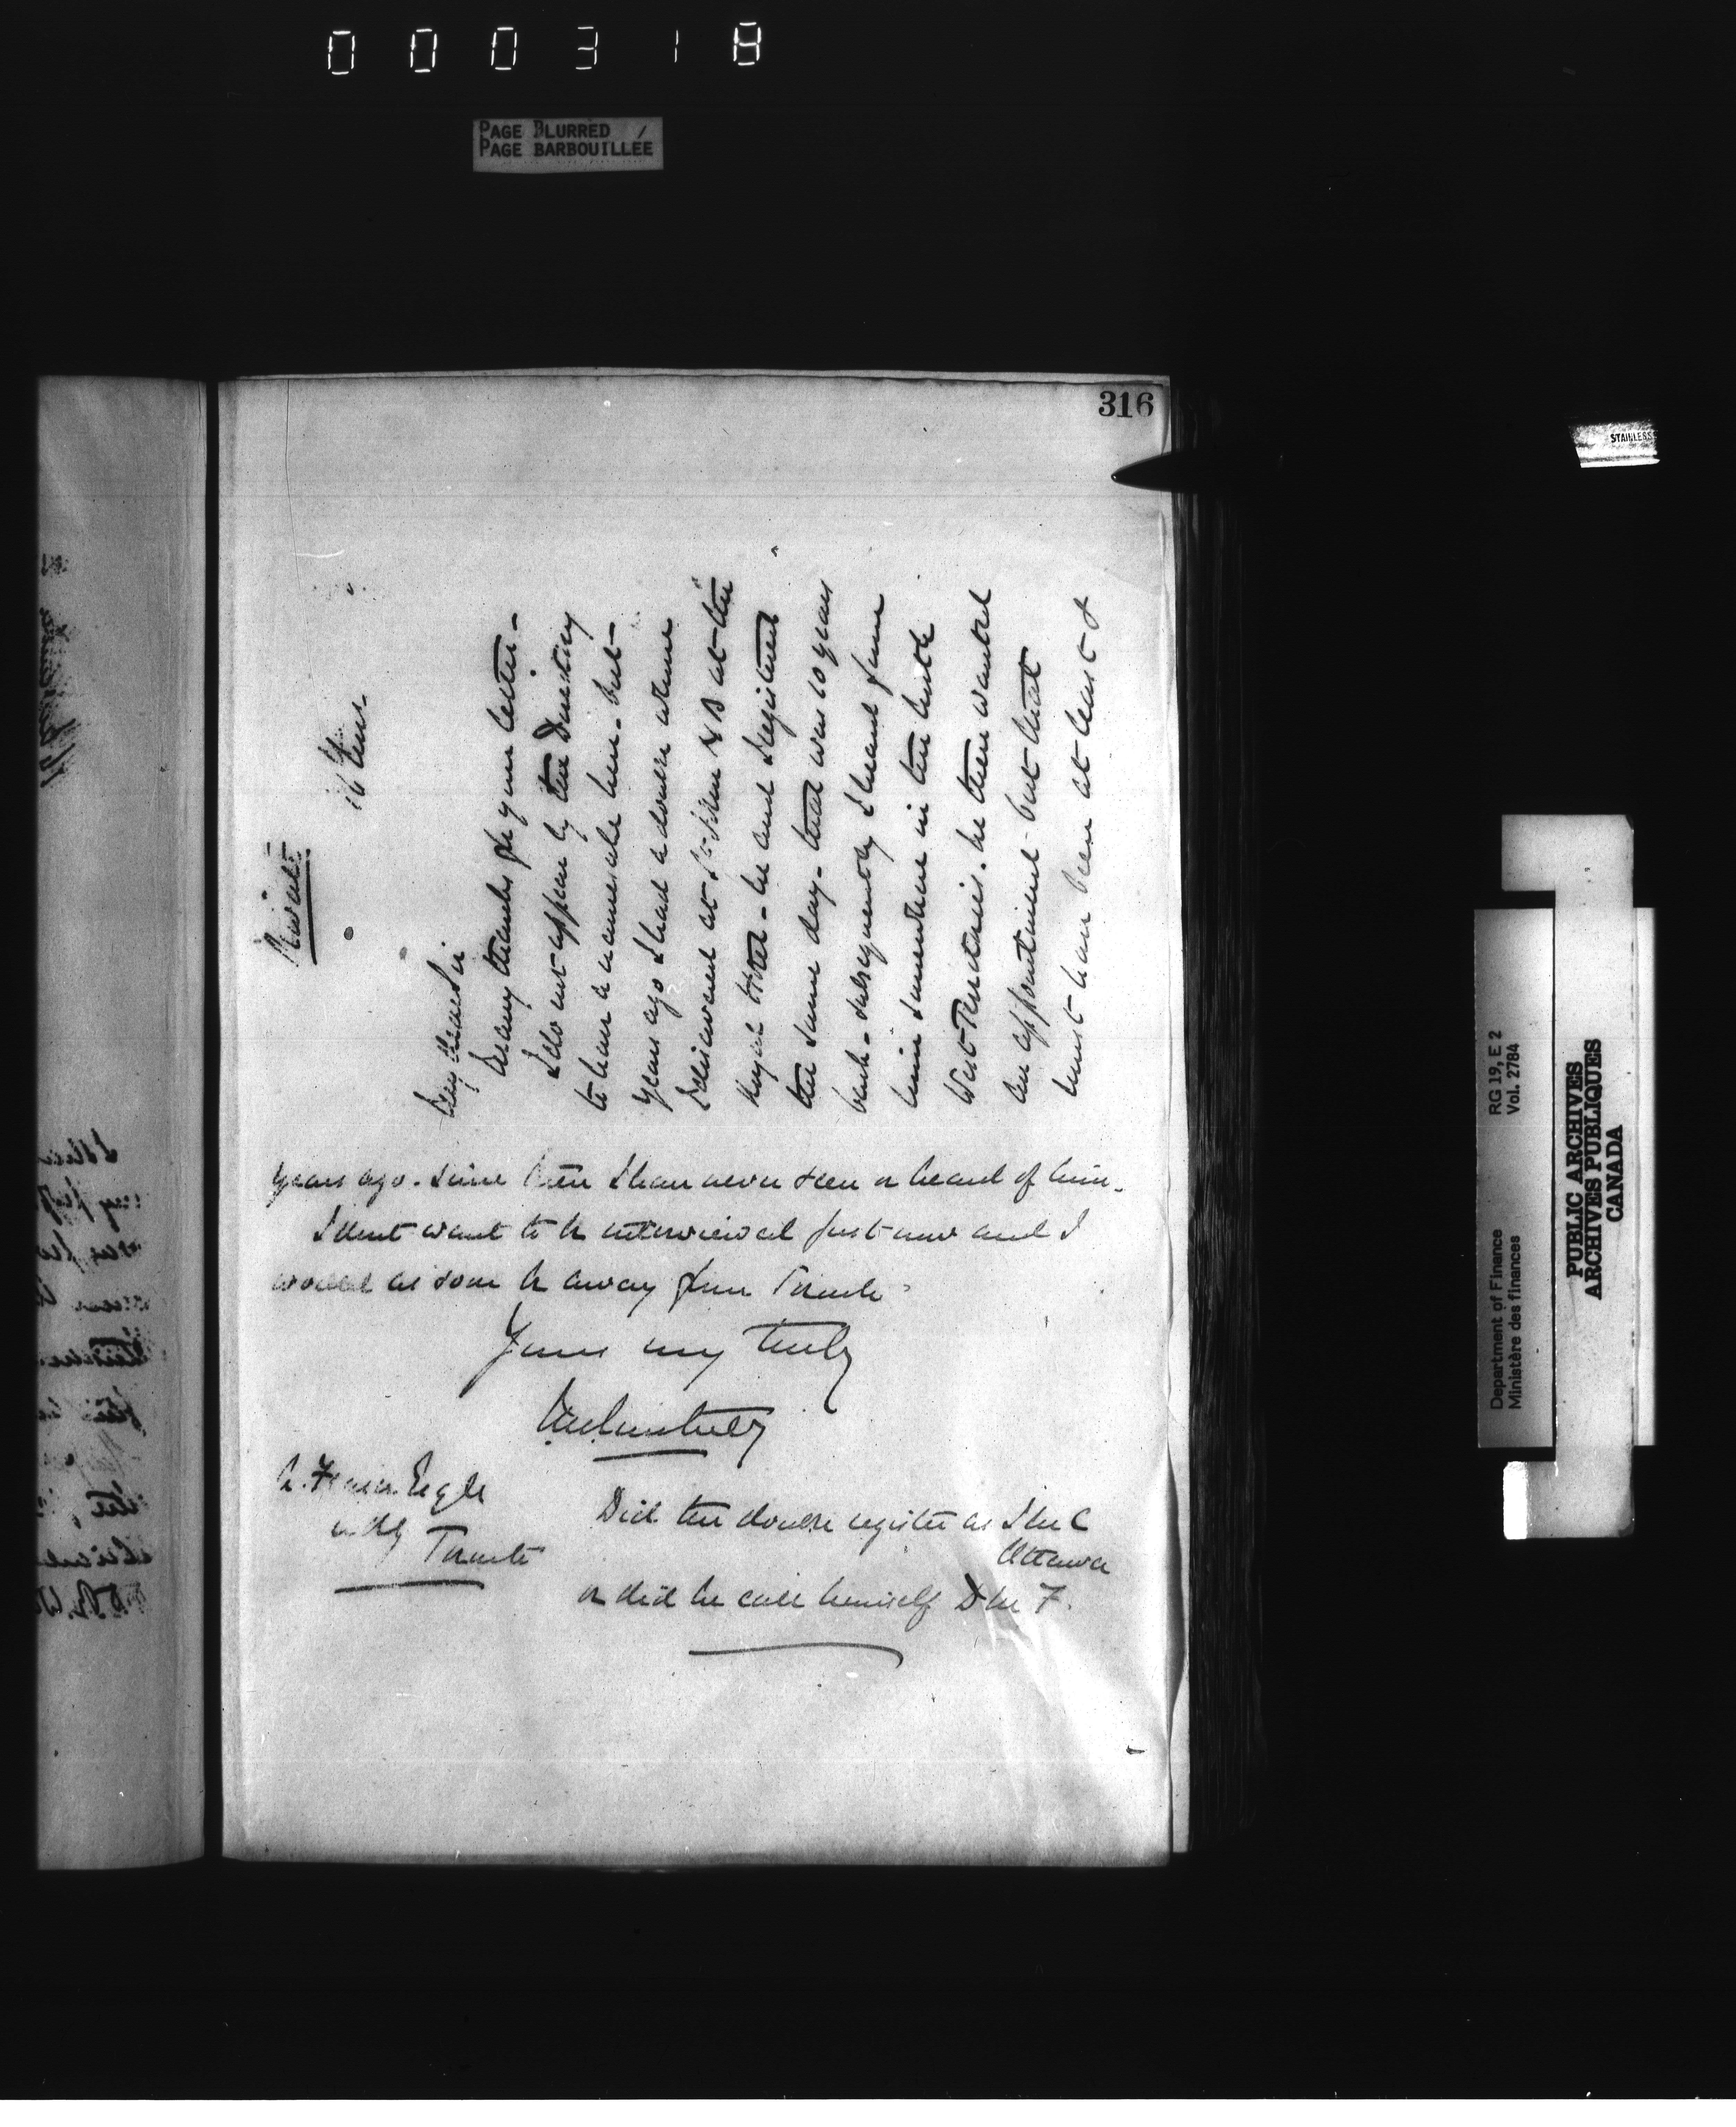 000318
PAGE BLURRED /
PAGE BARBOUILLÉE
316
STAINLESS
Private
16
My dear Sir
Many thanks for your letter -
I do not appear by the Directory
to have a namesake here - but
years ago I had a double whose
I discovered at St John N B at the
Royal Hotel - he and I registered
the same day - that was 10 years
back - subsequently I heard from
him somewhere in the North
West Territories. he then wanted
an appointment - but that
must have been at least 8
years ago. Since then I have never seen or heard of him.
I dont want to be interviewed just now and I
would as soon be away from Toronto
Yours very truly
Fraser
Toronto
Did the double register as
Ottawa
or did he call himself
RG 19, E 2
Vol. 2784
Department of Finance
Ministère des finances
PUBLIC ARCHIVES
ARCHIVES PUBLIQUES
CANADA